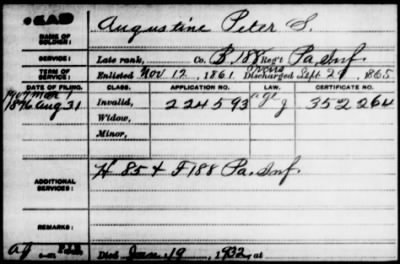 CAD
NAME OF SOLDIER: Augustine Peter S.
SERVICE: Late rank, Co. B, 188 Reg't Pa. Inf.
TERM OF SERVICE: Enlisted Nov 12, 1861 Discharged Sept 29, 1865.
DATE OF FILING. CLASS. APPLICATION NO. LAW. CERTIFICATE NO.
1876 Aug 31 Invalid, 224593 352264
Widow,
Minor,
ADDITIONAL SERVICES: H 85 & F 188 Pa. Inf.
REMARKS:
Died 19, 1932, at